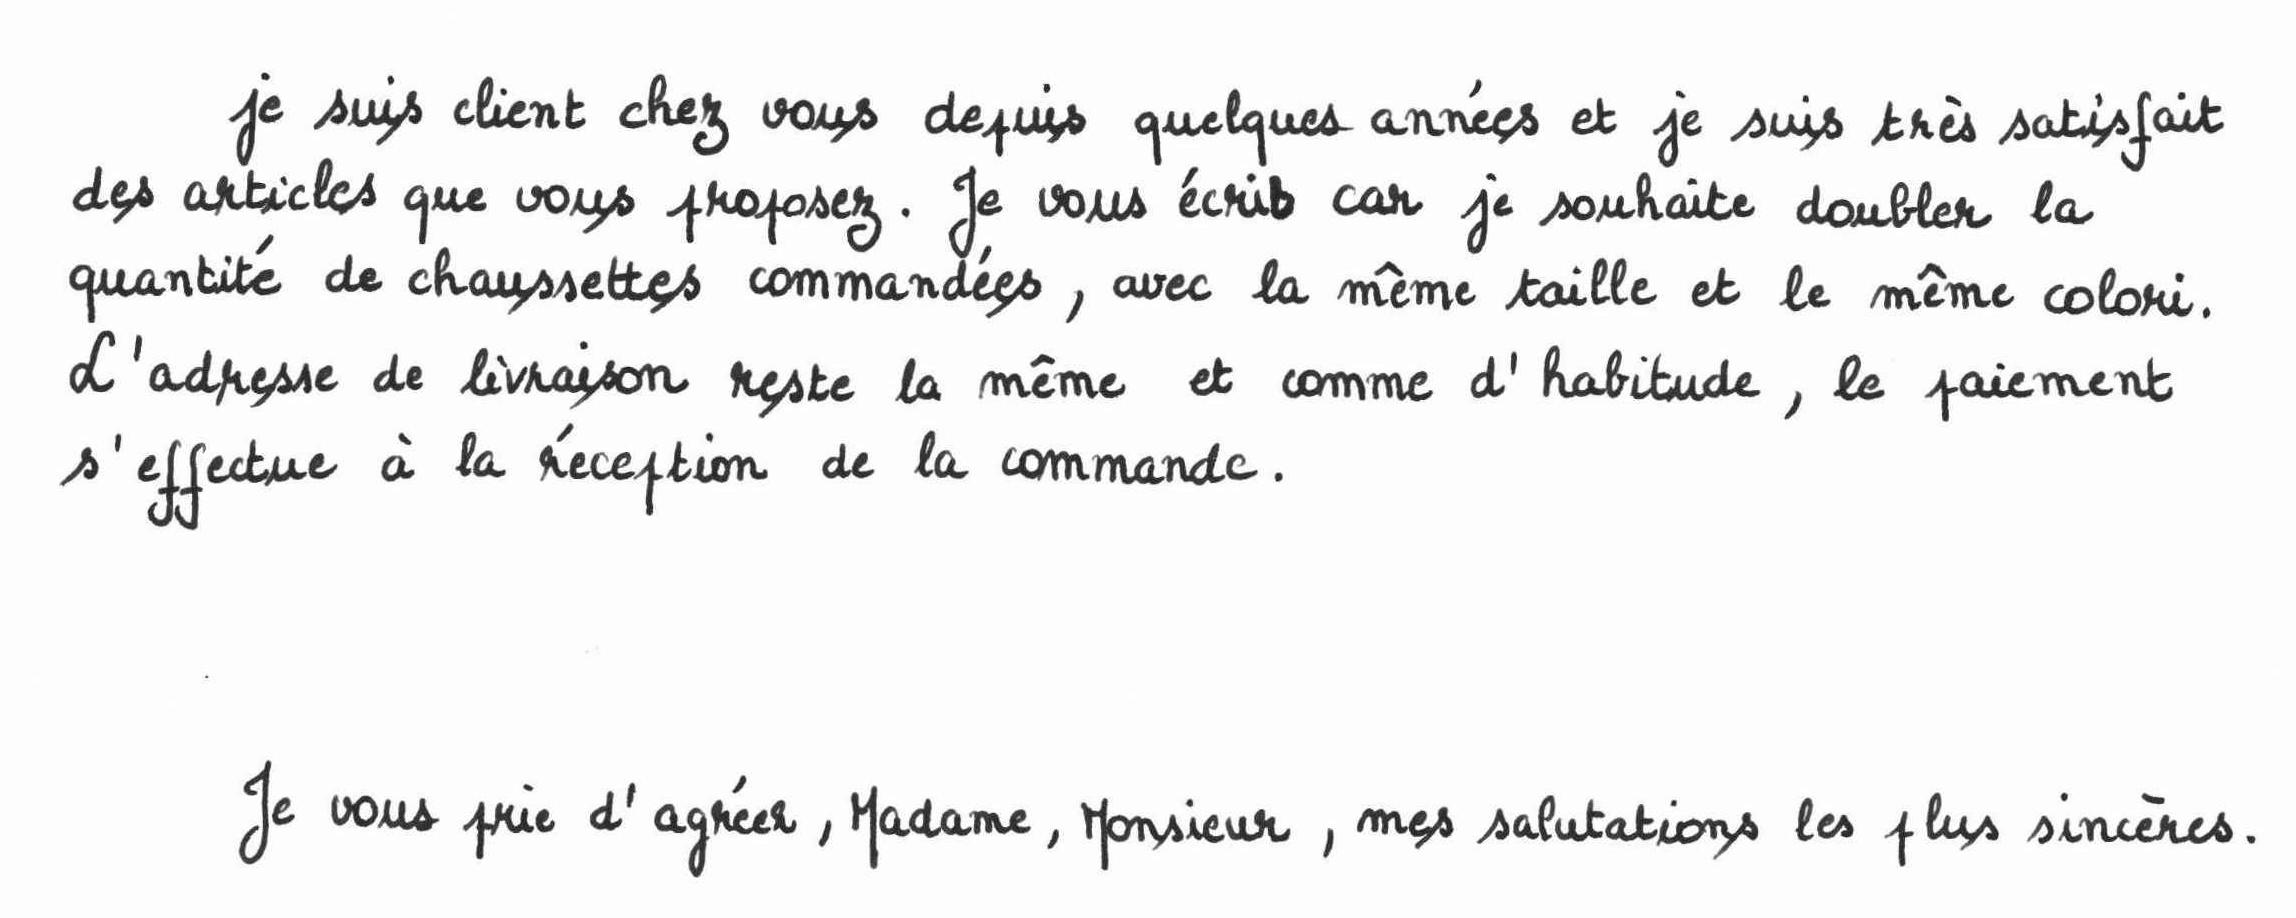 je suis client chez vous depuis quelques années et je suis très satisfait
des articles que vous proposez. Je vous écris car je souhaite doubler la
quantité de chaussettes commandées, avec la même taille et le même colori.
L'adresse de livraison reste la même et comme d'habitude, le paiement
s'effectue à la réception de la commande.
Je vous prie d'agréer, Madame, Monsieur, mes salutations les plus sincères.